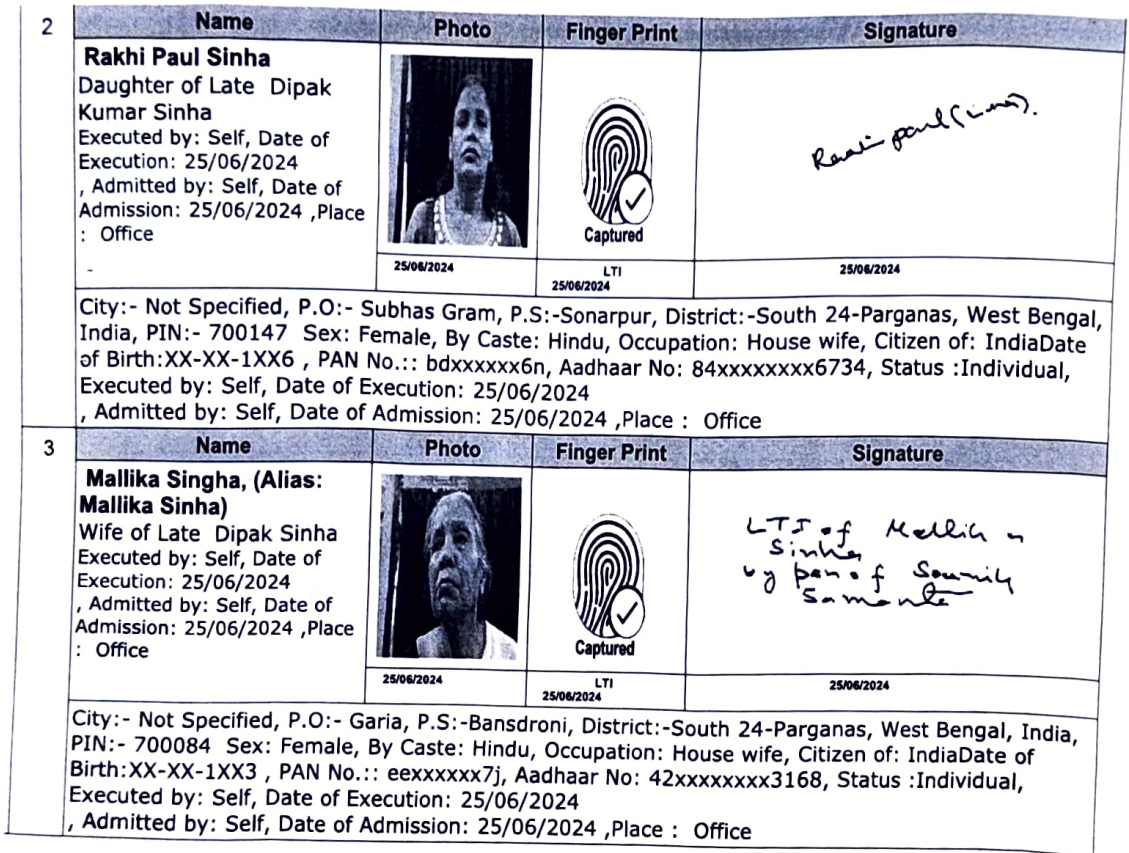 2
Name
Photo
Finger Print
Signature
Rakhi Paul Sinha
Daughter of Late Dipak
Kumar Sinha
Executed by: Self, Date of
Execution: 25/06/2024
, Admitted by: Self, Date of
Admission: 25/06/2024 ,Place
: Office
Captured
paul
-
25/06/2024
LTI
25/06/2024
25/06/2024
City:- Not Specified, P.O:- Subhas Gram, P.S:-Sonarpur, District:-South 24-Parganas, West Bengal,
India, PIN:- 700147 Sex: Female, By Caste: Hindu, Occupation: House wife, Citizen of: IndiaDate
of Birth:XX-XX-1XX6 , PAN No.:: bdxxxxxx6n, Aadhaar No: 84xxxxxxxx6734, Status :Individual,
Executed by: Self, Date of Execution: 25/06/2024
, Admitted by: Self, Date of Admission: 25/06/2024 ,Place : Office
3
Name
Photo
Finger Print
Signature
Mallika Singha, (Alias:
Mallika Sinha)
Wife of Late Dipak Sinha
Executed by: Self, Date of
Execution: 25/06/2024
, Admitted by: Self, Date of
Admission: 25/06/2024 ,Place
: Office
Captured
LTI of Mallika
Sinha
by pen of Soumik
Samanta
25/06/2024
LTI
25/06/2024
25/06/2024
City:- Not Specified, P.O:- Garia, P.S:-Bansdroni, District:-South 24-Parganas, West Bengal, India,
PIN:- 700084 Sex: Female, By Caste: Hindu, Occupation: House wife, Citizen of: IndiaDate of
Birth:XX-XX-1XX3 , PAN No.:: eexxxxxx7j, Aadhaar No: 42xxxxxxxx3168, Status :Individual,
Executed by: Self, Date of Execution: 25/06/2024
, Admitted by: Self, Date of Admission: 25/06/2024 ,Place : Office